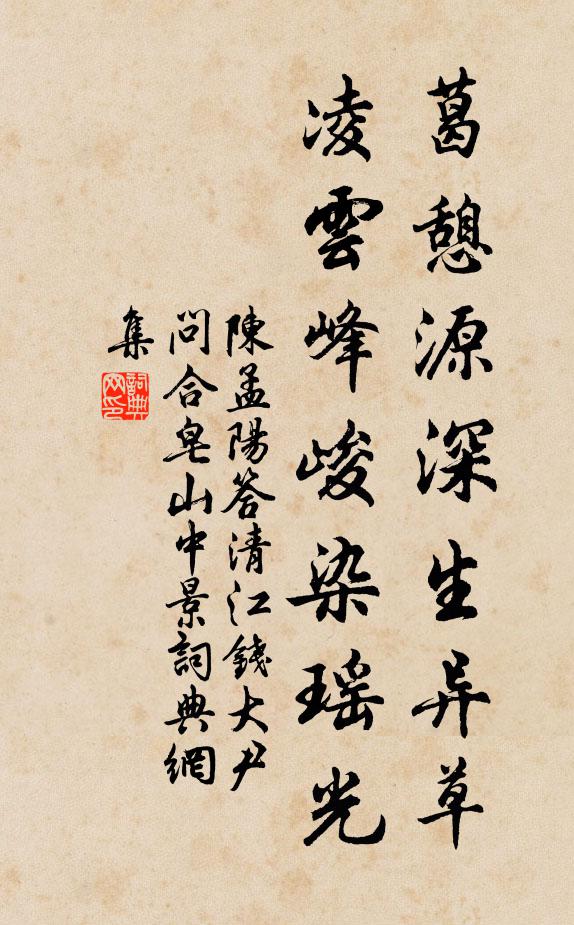 葛憩源深生异草
凌雲峰峻染瑶光
陳孟陽答清江錢大尹
問合皂山中景詞典網
集
詞典网印